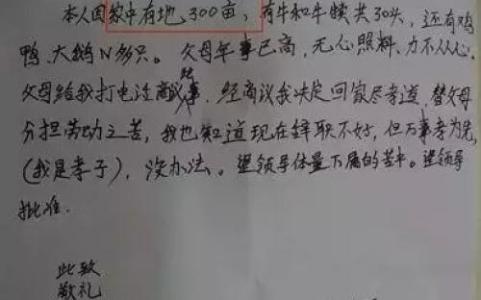 本人因家中有地300亩,有牛和牛犊共30头,还有鸡
鸭、大鹅N多只。父母年事已高,无心照料、力不从心,
父母给我打电话商议此事,经商议我决定回家尽孝道,替父母
分担劳动之苦,我也知道现在辞职不好,但万事孝为先,
(我是孝子),没办法。望领导体量下属的苦中。望领导
批准.
此致
敬礼